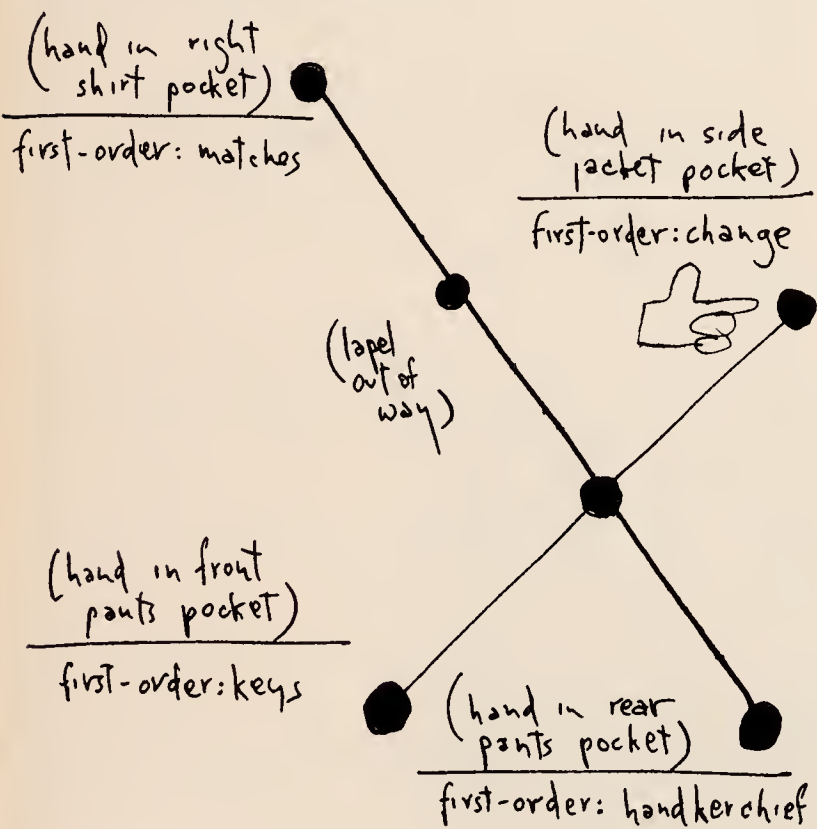 (hand in right
shirt pocket)
first-order: matches
(hand in side
jacket pocket)
first-order: change
(lapel
out of
way)
(hand in front
pants pocket)
first-order: keys
(hand in rear
pants pocket)
first-order: handkerchief